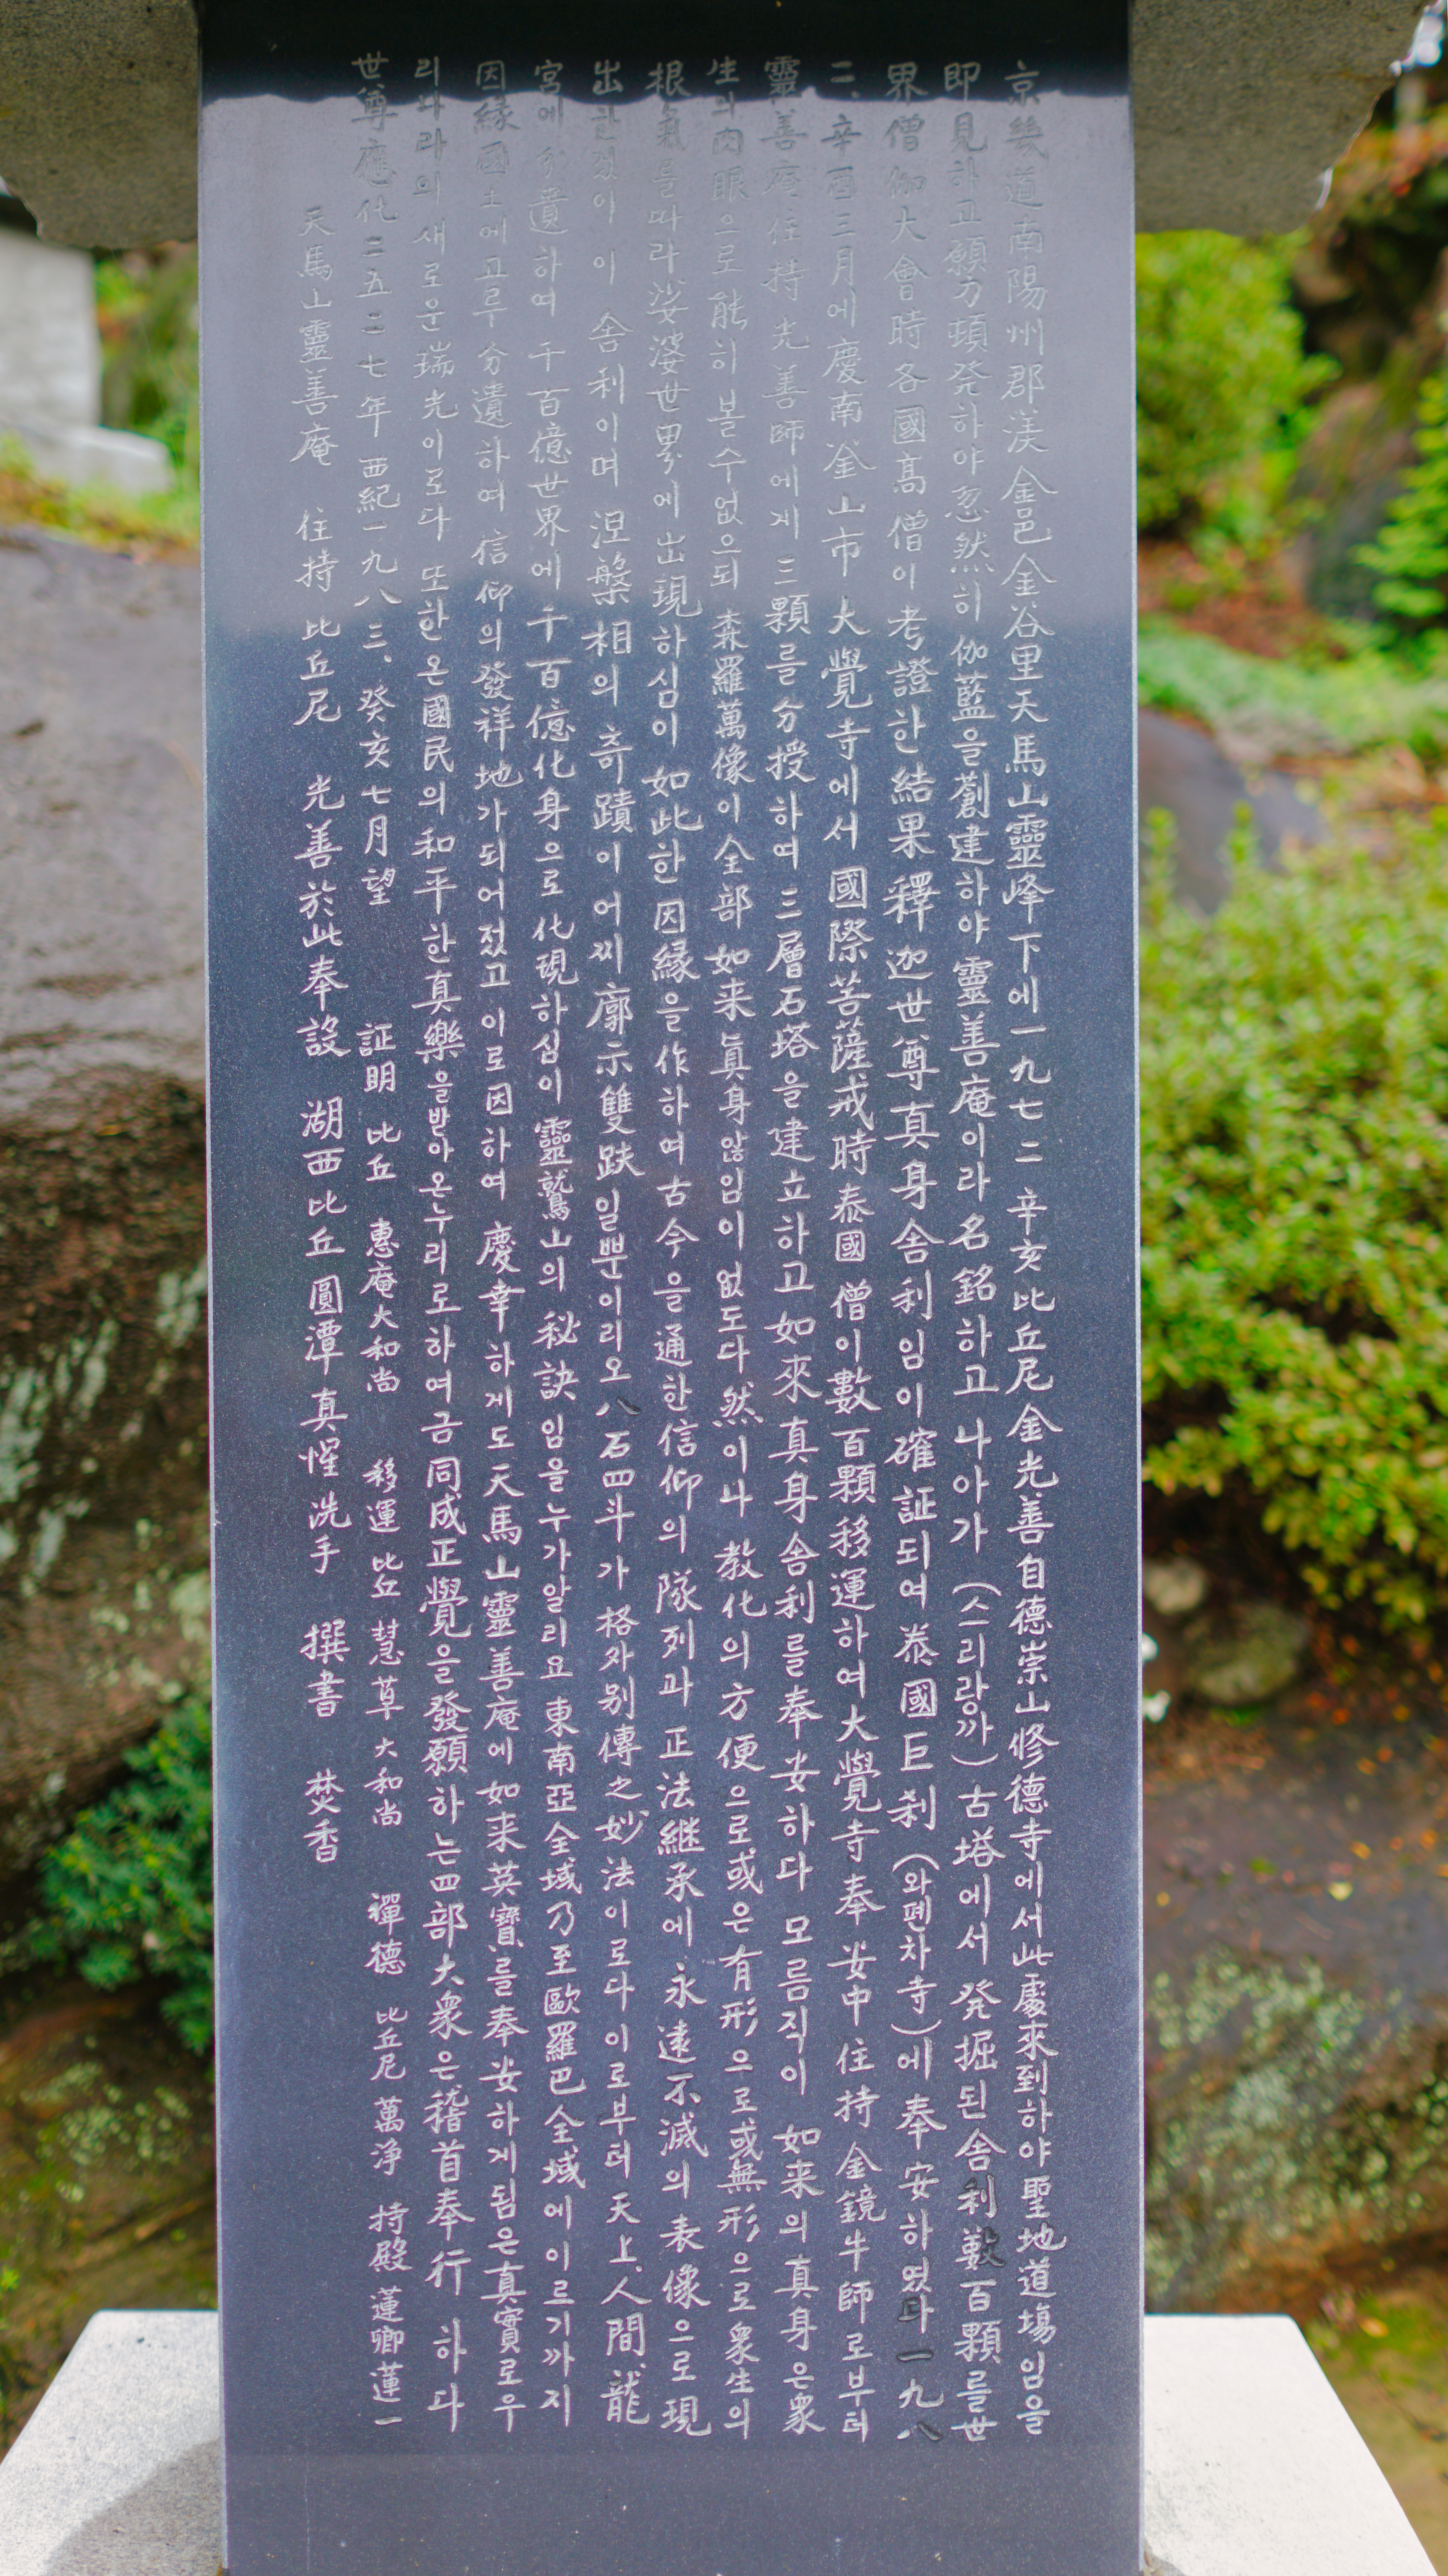 京畿道南陽州郡渼金邑金谷里天馬山靈峰下에一九七二 辛亥比丘尼金光善自德崇山修德寺에서此處來到하야聖地道場임을
即見하고願力頓発하야忽然히伽藍을創建하야靈善庵이라名銘하고나아가(스리랑까)古塔에서発掘된舍利數百顆를世
界僧伽大會時各國高僧이考證한結果釋迦世尊真身舍利임이確証되여泰國巨刹(와펜차寺)에奉安하였다一九八
二、辛酉三月에慶南釜山市大覺寺에서國際菩薩戒時泰國僧이數百顆移運하여大覺寺奉安中住持金鏡牛師로부터
靈善庵住持光善師에게三顆를分授하여三層石塔을建立하고如來真身舍利를奉安하다모름직이如来의真身은衆
生의肉眼으로能히볼수없으되森羅萬像이全部如来眞身않임이없도다然이나教化의方便으로或은有形으로或無形으로衆生의
根氣를따라娑婆世界에出現하심이如此한因緣을作하여古今을通한信仰의隊列과正法継承에永遠不滅의表像으로現
出한것이이舍利이며涅槃相의奇蹟이어찌廓示雙趺일뿐이리오八石四斗가格外别傳之妙法이로다이로부터天上、人間、龍
宮에分遺하여千百億世界에千百億化身으로化現하심이靈鷲山의秘訣임을누가알리요東南亞全域乃至歐羅巴全域에이르기까지
因緣國土에고루分遺하여信仰의發祥地가되어젔고이로因하여慶幸하게도天馬山靈善庵에如来英寶를奉安하게됨은真實로우
리나라의새로운瑞光이로다또한온國民의和平한真樂을받아온누리로하여금同成正覺을發願하는四部大衆은稽首奉行하다
世尊應化二五二七年 西紀一九八三、癸亥七月望 証明 比丘 惠庵大和尚 移運 比丘 慧草大和尚 禪德 比丘尼 萬淨 持殿 蓮卿蓮一
天馬山靈善庵 住持 比丘尼 光善於此奉設 湖西比丘圓潭真惺洗手 撰書 焚香